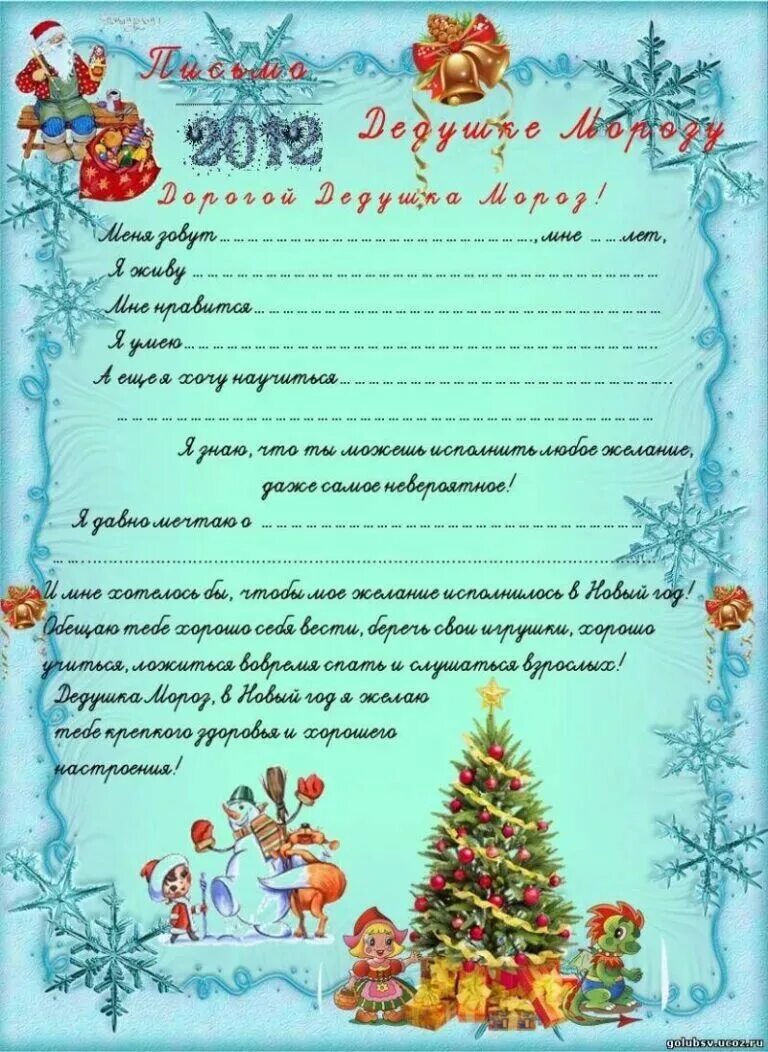 Письмо
2012
Дедушке Морозу
Дорогой Дедушка Мороз!
Меня зовут……………………………………………………., мне ……лет,
Я живу ………………………………………………………………………
Мне нравится………………………………………………………………
Я умею………………………………………………………………………..
А еще я хочу научиться…………………………………………………..
………………………………………………………………………………
Я знаю, что ты можешь исполнить любое желание,
даже самое невероятное!
Я давно мечтаю о …………………………………………………………
………………………………………………………………………………………
И мне хотелось бы, чтобы мое желание исполнилось в Новый год!
Обещаю тебе хорошо себя вести, беречь свои игрушки, хорошо
учиться, ложиться вовремя спать и слушаться взрослых!
Дедушка Мороз, в Новый год я желаю
тебе крепкого здоровья и хорошего
настроения!
golubsv.ucoz.ru